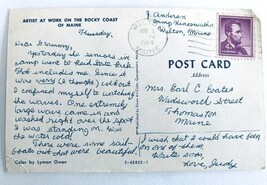 ARTIST AT WORK ON THE ROCKY COAST
OF MAINE
Thursday,
Dear Grammy,
Yesterday the seniors in
camp went to Reid State Park.
That includes me. Since it
was very (& tough) cold out
I confined myself to watching
the waves. One extremely
large wave came in and
washed right over the spot
I was standing on. Was
the water cold!
There were some sail-
boats out that were beautiful.
Color by Lyman Owen
S-42802-1
Anderson
Camp Kineowatha
Wilton, Maine
POST CARD
Address
Mrs. Earl C. Coates
Wadsworth Street
Thomaston
Maine
I wish that I could have been
on one of them.
Write soon,
Love, Judy